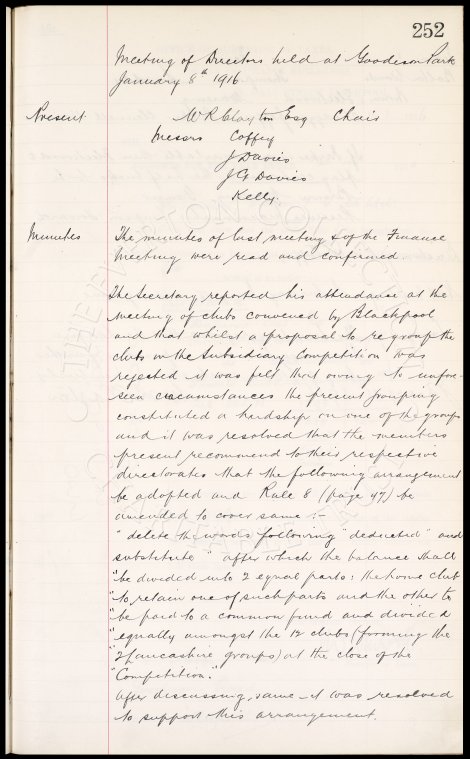 252
Meeting of Directors held at Goodison Park
January 8th 1916.
Present W R Clayton Esq Chair
Messrs Coffey
J Davies
J G Davies
Kelly.
Minutes The minutes of last meeting & of the Finance
Meeting were read and confirmed
The Secretary reported his attendance at the
meeting of clubs convened by Blackpool
and that whilst a proposal to regroup the
clubs in the Subsidiary Competition was
rejected it was felt that owing to unfore-
seen circumstances the present grouping
constituted a hardship on one of the groups
and it was resolved that the members
present recommend to their respective
directorates that the following arrangement
be adopted and Rule 8 (page 47) be
amended to cover same :-
"delete the words following "deducted" and
substitute " after which the balance shall
"be divided into 2 equal parts: the home club
"to retain one of such parts and the other to
"be paid to a common fund and divided
"equally amongst the 12 clubs (forming the
"2 Lancashire groups) at the close of the
"Competition."
After discussing same it was resolved
to support this arrangement.